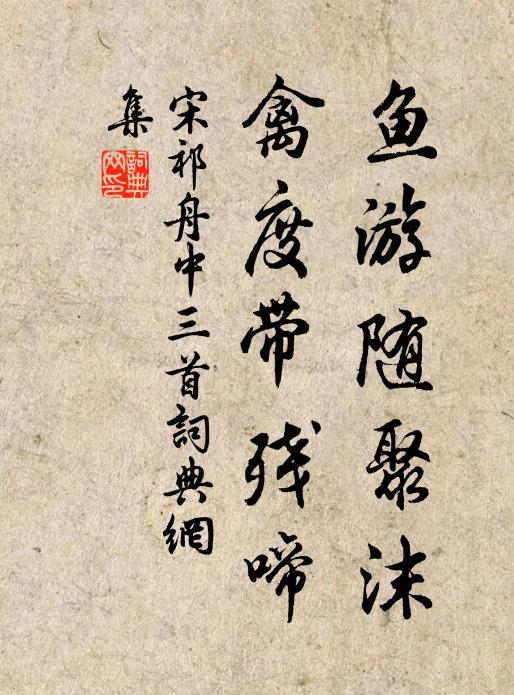 鱼游随聚沫
禽度带残啼
宋祁舟中三首詞典網
集
詞典网印